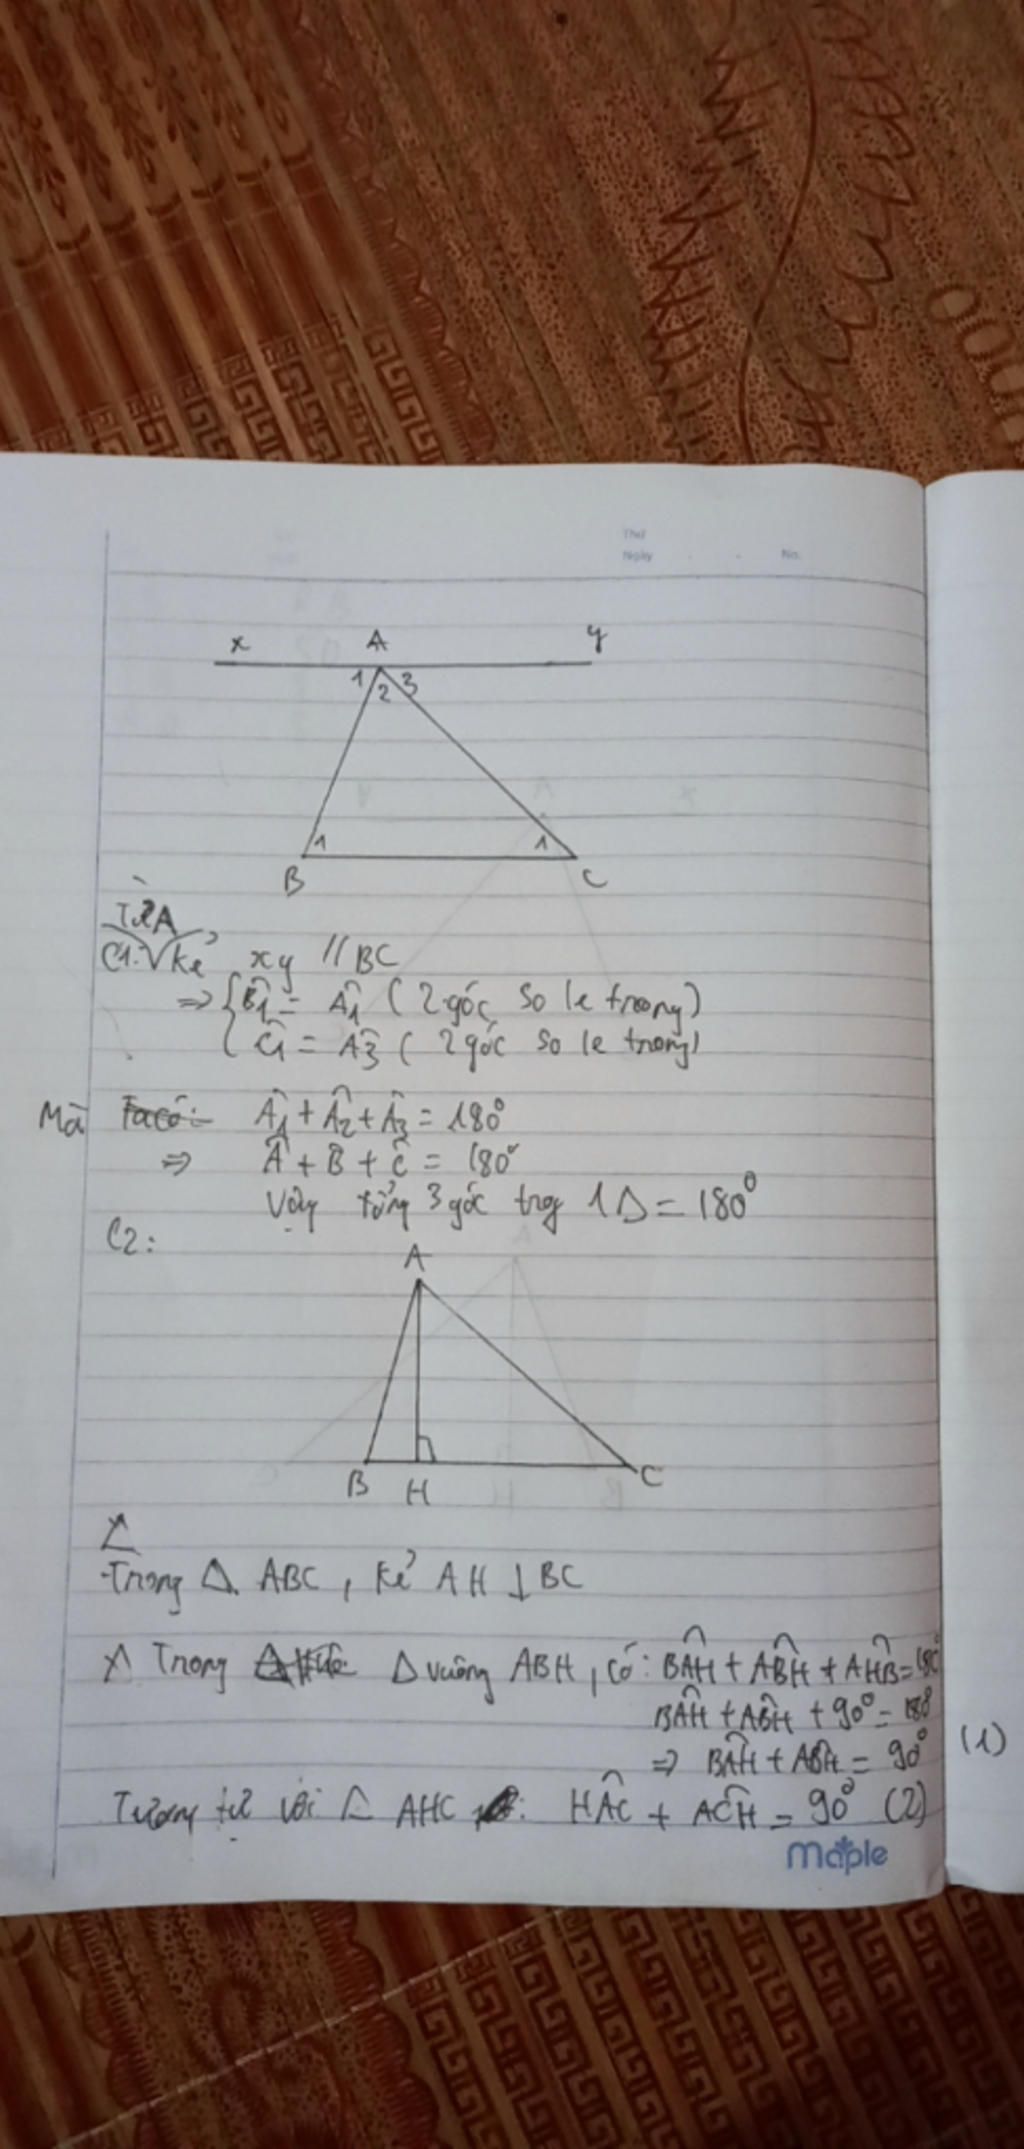 Thứ
Ngày . . No.
x A y
1 2 3
1 1
B C
Từ A
C1: Kẻ xy // BC
⇒ { B̂1 = Â1 ( 2 góc so le trong)
Ĉ1 = Â3 ( 2 góc so le trong)
Mà Ta có: Â1 + Â2 + Â3 = 180°
⇒ Â + B̂ + Ĉ = 180°
Vậy tổng 3 góc trg 1 Δ = 180°
C2:
A
B H C
Trong Δ ABC , kẻ AH ⊥ BC
Trong Δ vuông ABH , có : BÂH + AB̂H + AĤB = 180°
BÂH + AB̂H + 90° = 180°
⇒ BÂH + AB̂H = 90° (1)
Tương tự với Δ AHC : HÂC + AĈH = 90° (2)
maple